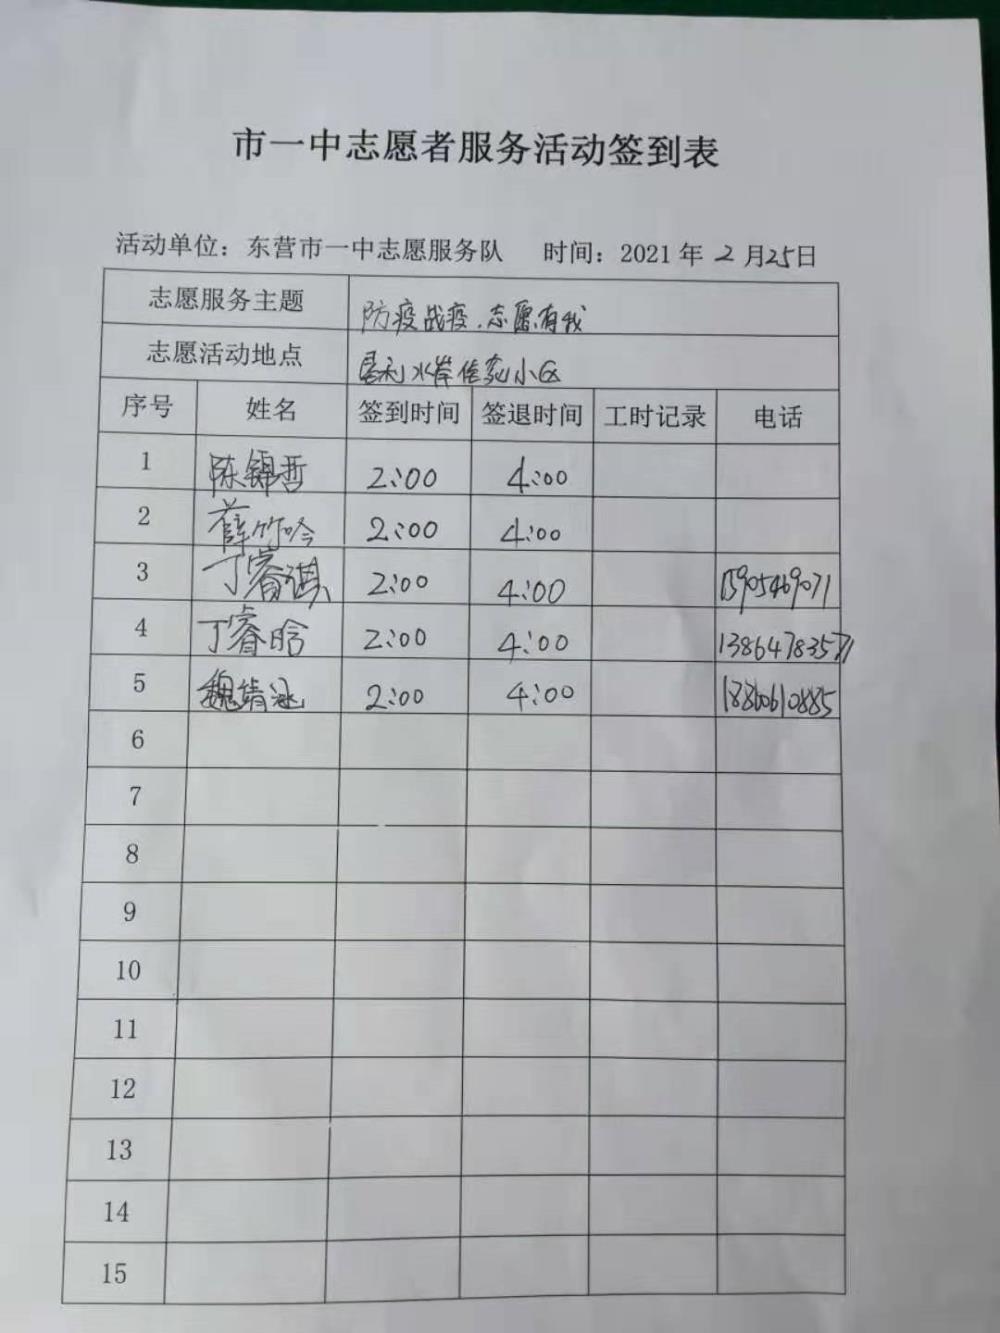 市一中志愿者服务活动签到表
活动单位：东营市一中志愿服务队 时间：2021 年 2 月 25 日
志愿服务主题 防疫战疫，志愿有我
志愿活动地点 水岸佳苑小区
序号 姓名 签到时间 签退时间 工时记录 电话
1 陈锦哲 2:00 4:00
2 薛竹吟 2:00 4:00
3 丁睿琪 2:00 4:00 15905469071
4 丁睿晗 2:00 4:00 13864783571
5 魏婧涵 2:00 4:00
6
7
8
9
10
11
12
13
14
15